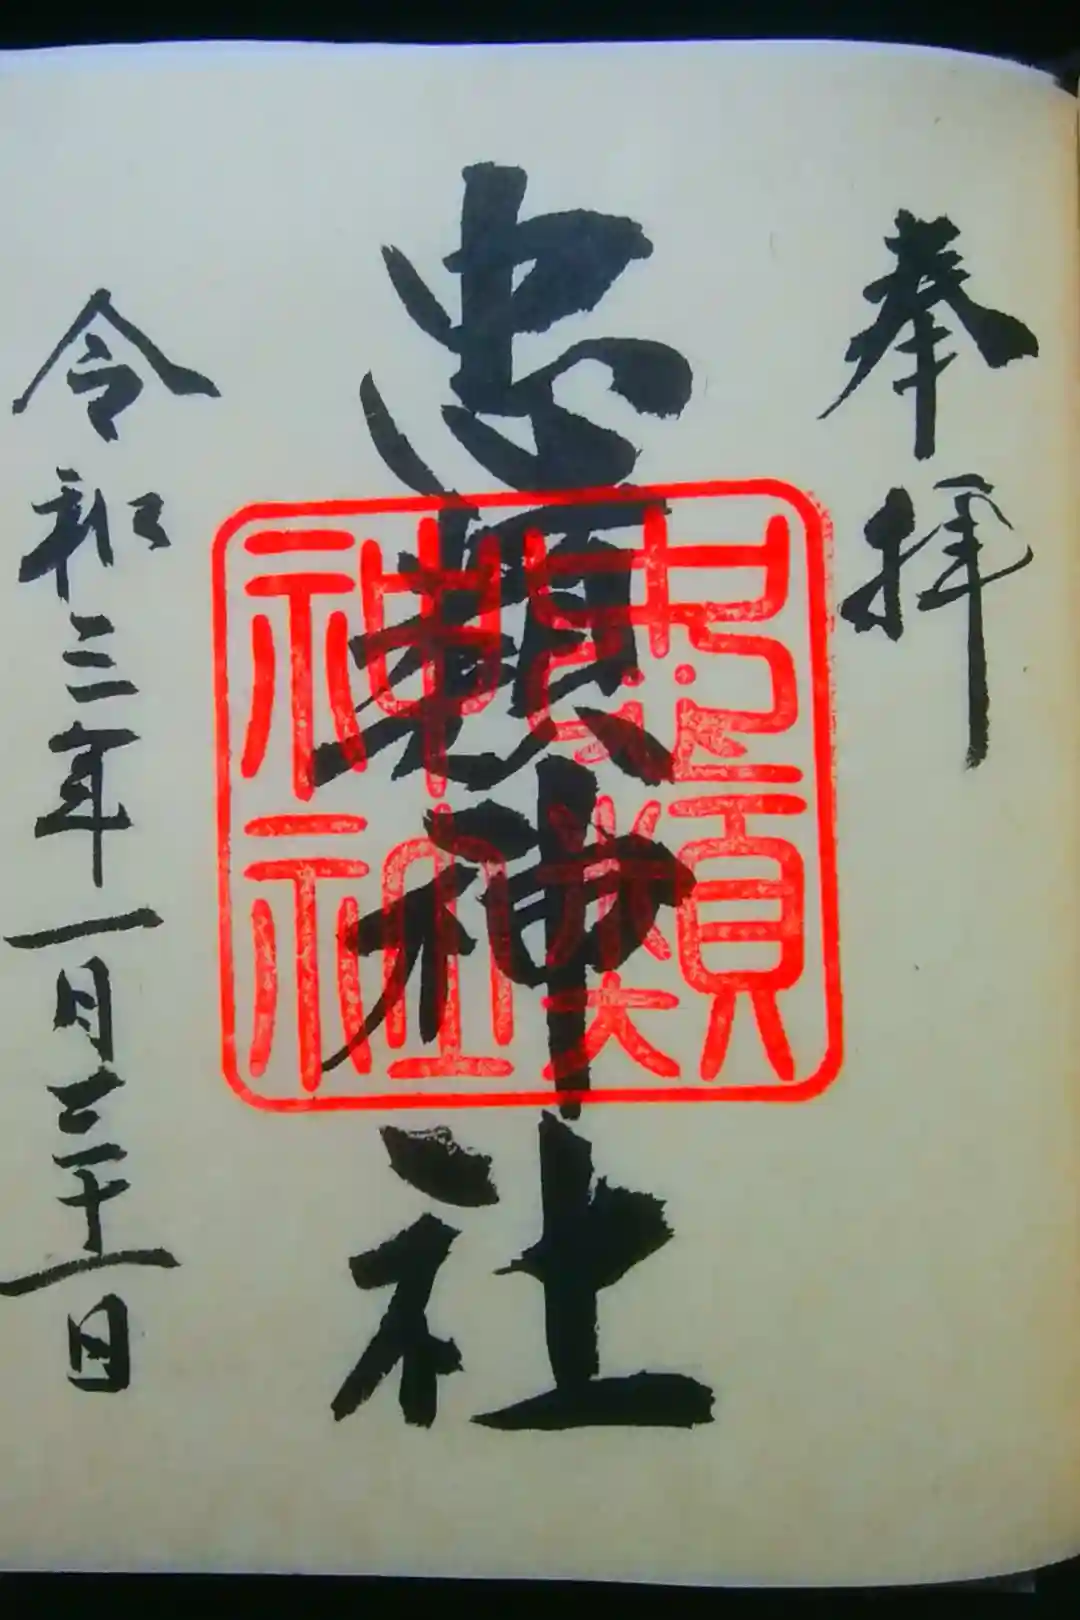 奉拝
忠類神社
忠類神社
令和三年一月三十一日